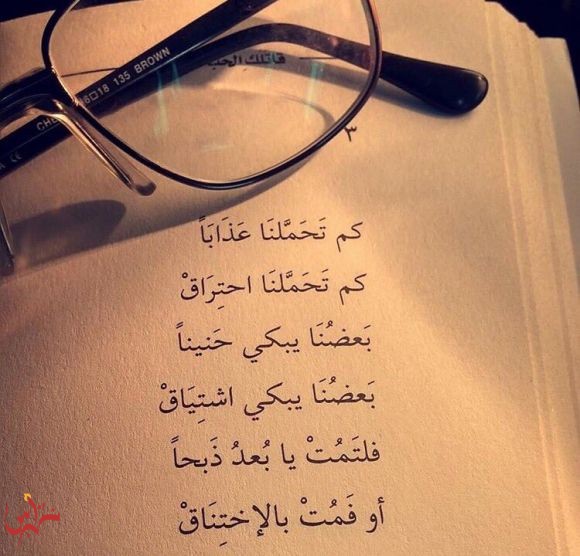 135 BROWN
٣
كم تَحَمَّلنَا عَذَابَاً
كم تَحَمَّلنَا احتِرَاقْ
بَعضُنَا يبكي حَنيناً
بَعضُنَا يبكي اشتِيَاقْ
فلتَمُتْ يا بُعدُ ذَبحاً
أو فَمُتْ بالإختِنَاقْ